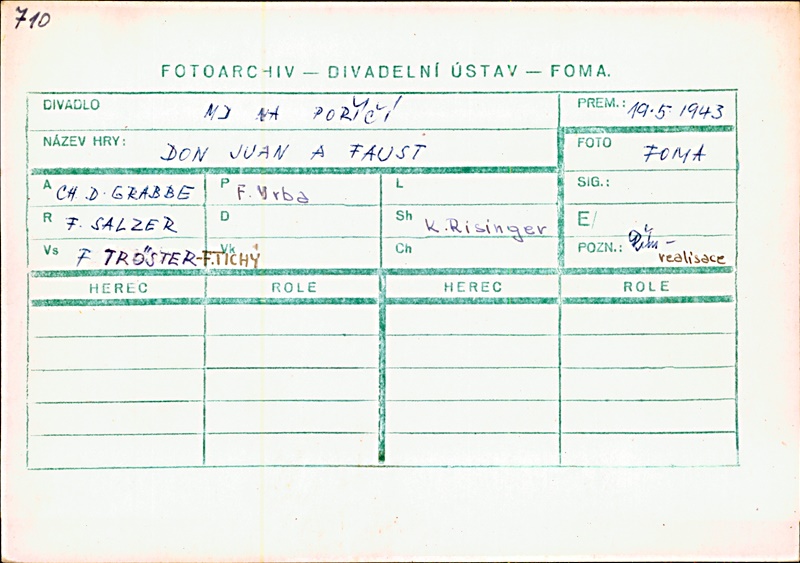 710
FOTOARCHIV — DIVADELNÍ ÚSTAV — FOMA.
DIVADLO MD NA POŘÍČÍ
PREM.: 19.5.1943
NÁZEV HRY: DON JUAN A FAUST
FOTO FOMA
A CH. D. GRABBE P F. Vrba L
SIG.:
R F. SALZER D Sh K. Risinger
E/
Vs F TRÖSTER-F.TICHÝ Vk Ch
POZN.: realisace
HEREC ROLE HEREC ROLE